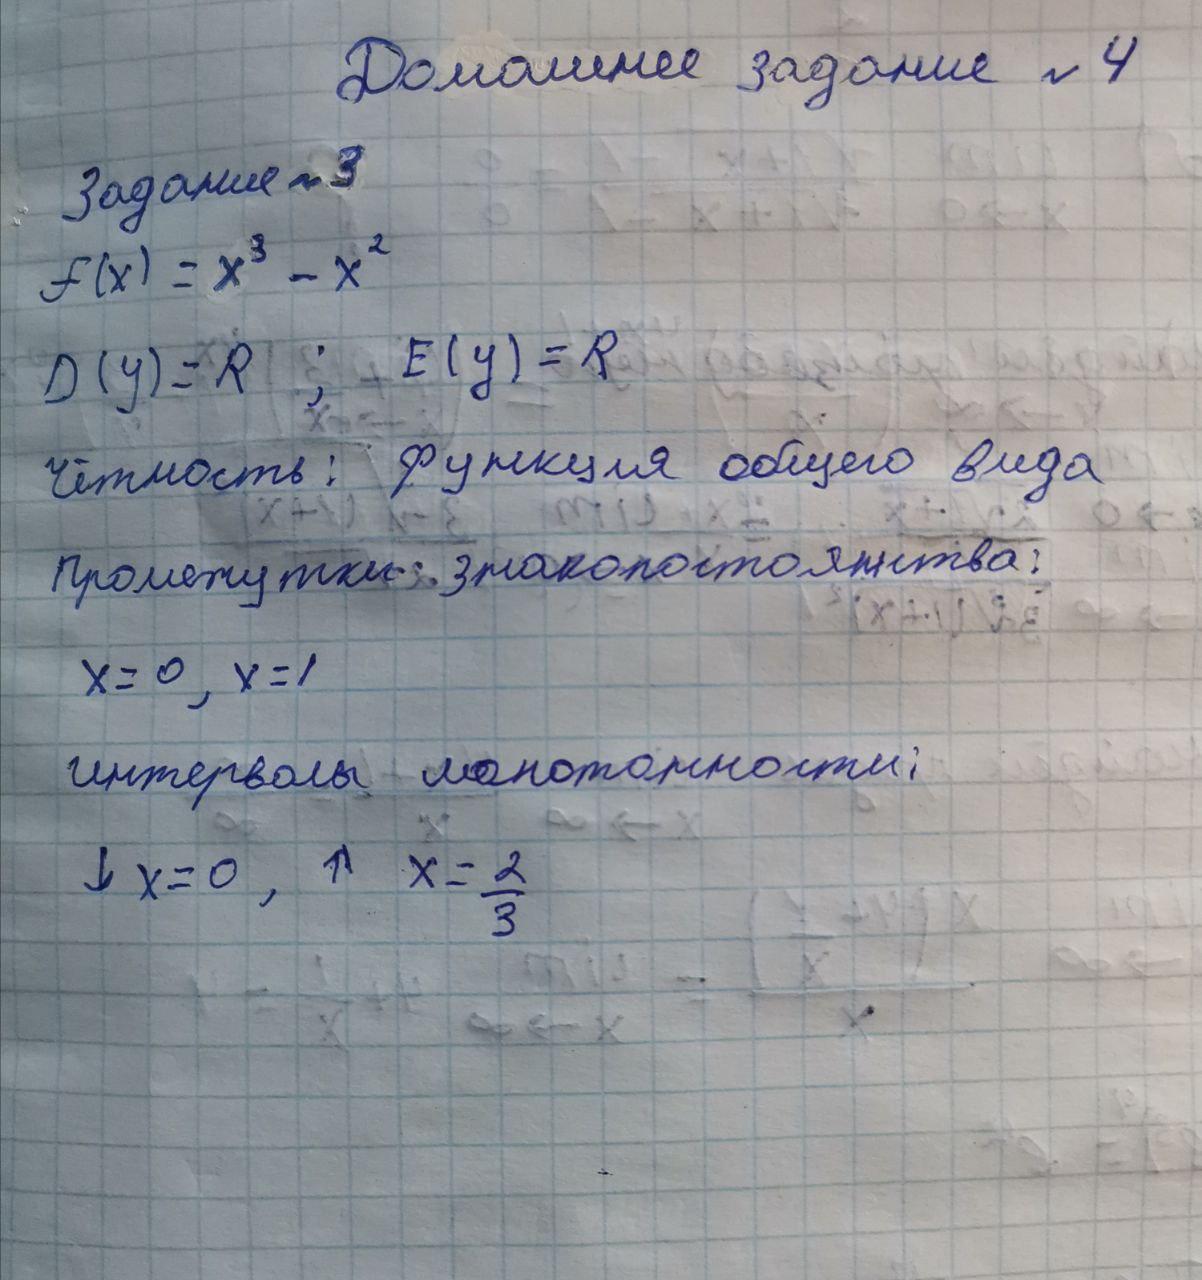 Домашнее задание №4
Задание №3
f(x) = x³ - x²
D(y) = R ; E(y) = R
Чётность: Функция общего вида
Промежутки знакопостоянства:
x=0, x=1
Интервалы монотонности:
↓ x=0, ↑ x = 2/3